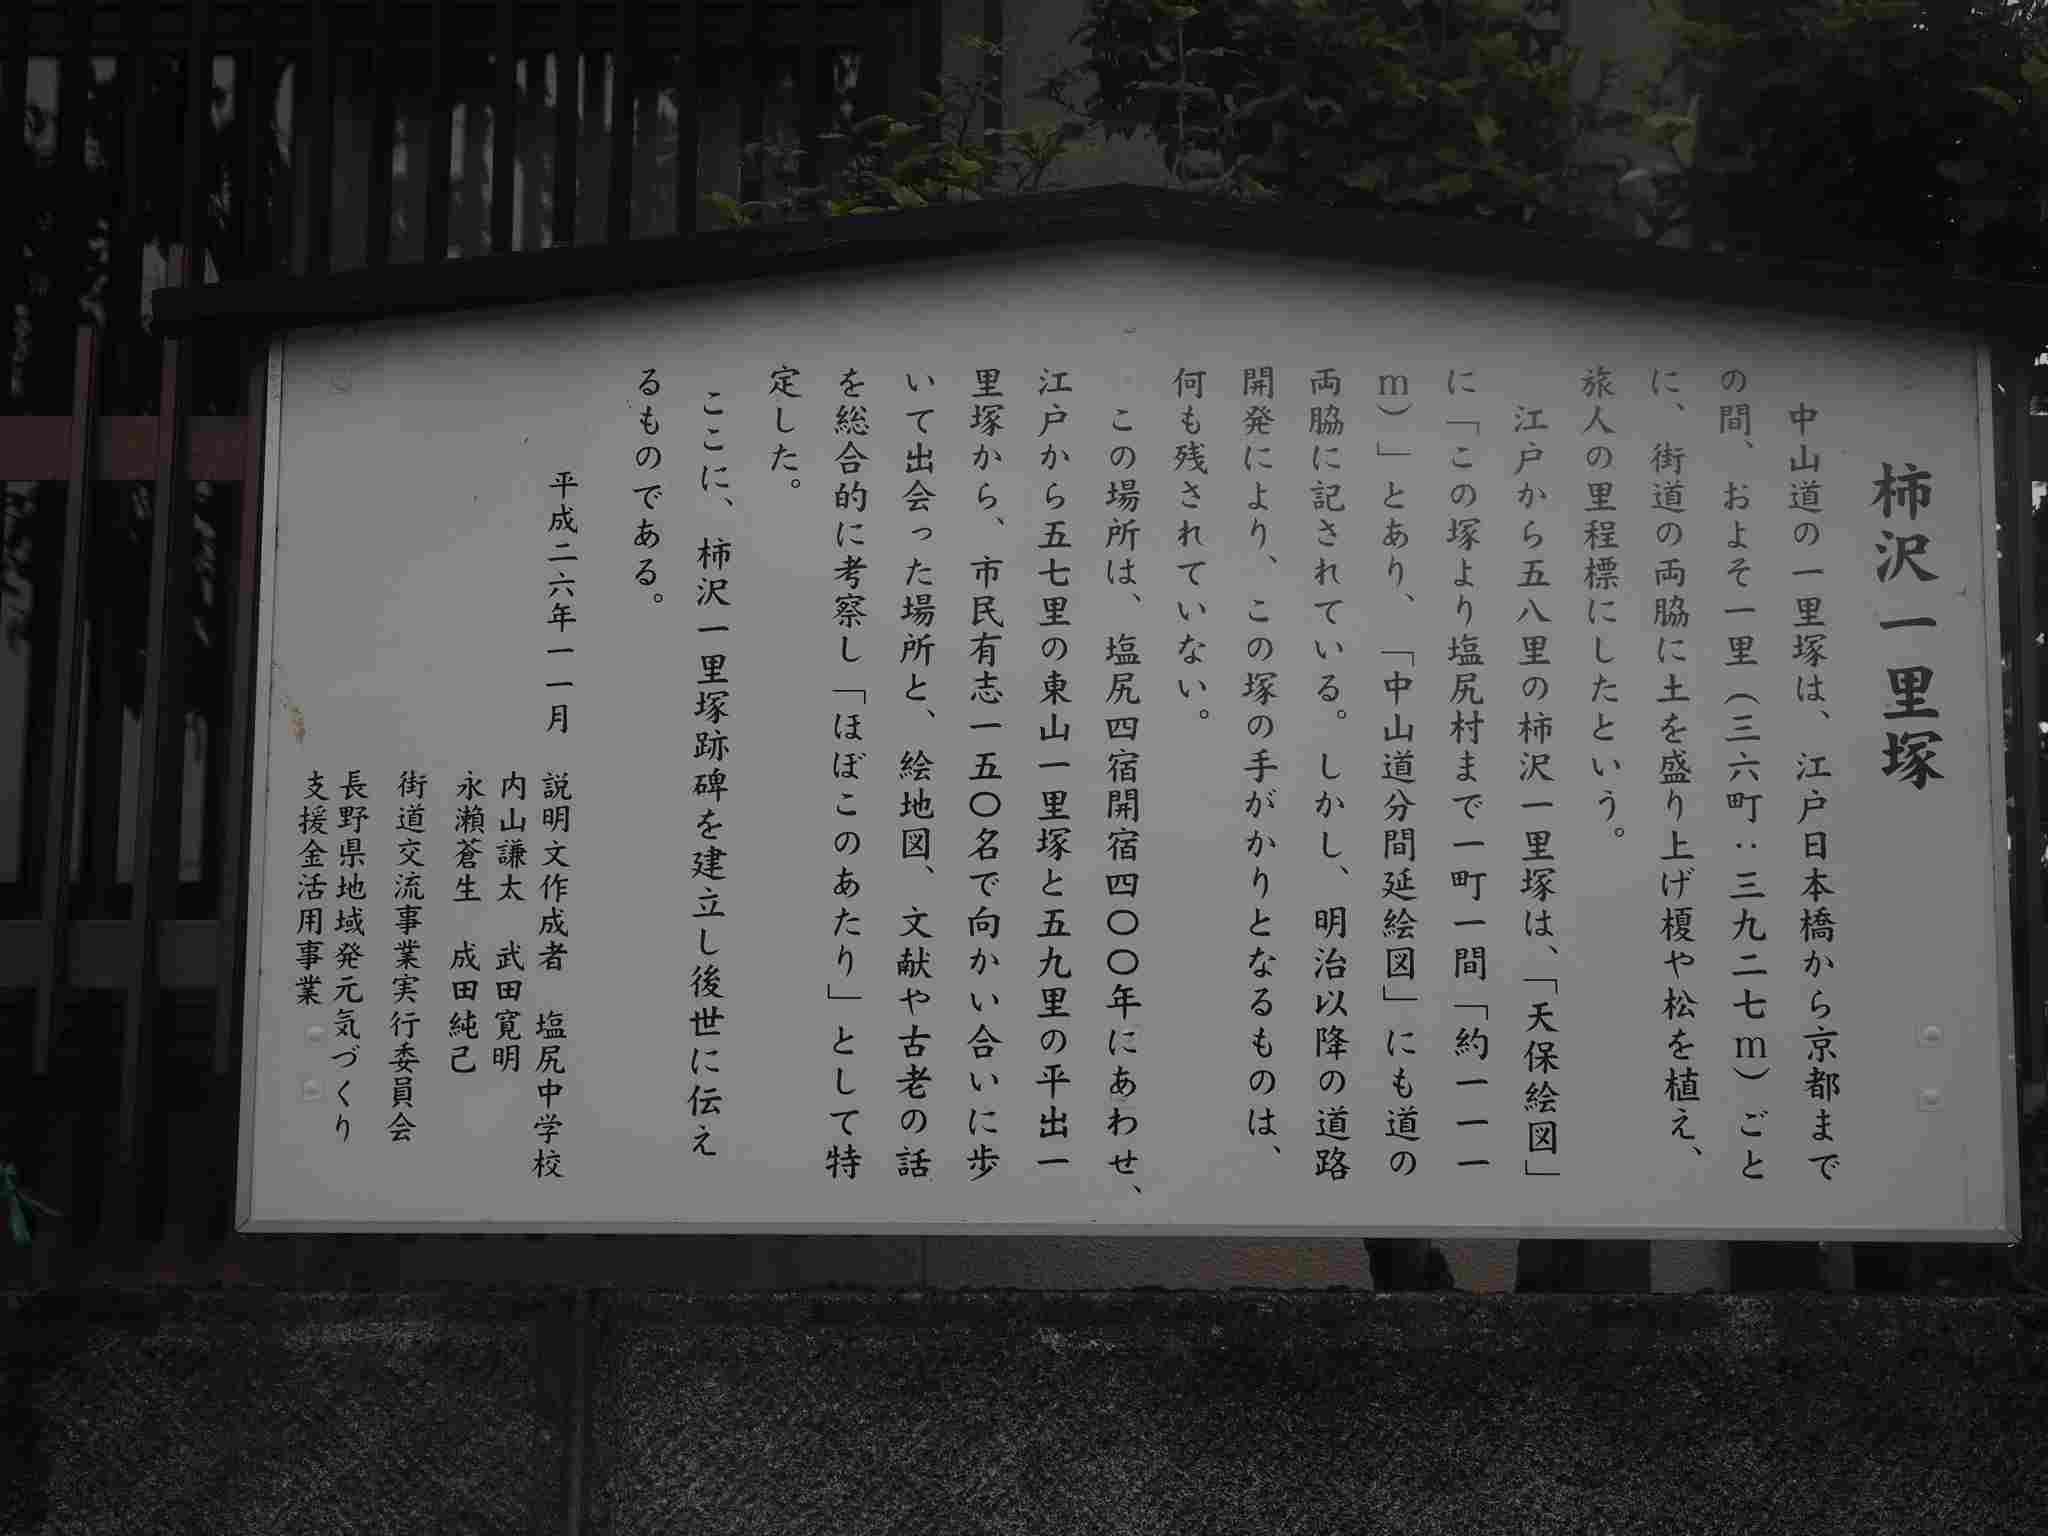 柿沢一里塚
中山道の一里塚は、江戸日本橋から京都まで
の間、およそ一里（三六町：三九二七ｍ）ごと
に、街道の両脇に土を盛り上げ榎や松を植え、
旅人の里程標にしたという。
江戸から五八里の柿沢一里塚は、「天保絵図」
に「この塚より塩尻村まで一町一間「約一一一
ｍ）」とあり、「中山道分間延絵図」にも道の
両脇に記されている。しかし、明治以降の道路
開発により、この塚の手がかりとなるものは、
何も残されていない。
この場所は、塩尻四宿開宿四〇〇年にあわせ、
江戸から五七里の東山一里塚と五九里の平出一
里塚から、市民有志一五〇名で向かい合いに歩
いて出会った場所と、絵地図、文献や古老の話
を総合的に考察し「ほぼこのあたり」として特
定した。
ここに、柿沢一里塚跡碑を建立し後世に伝え
るものである。
平成二六年一一月
説明文作成者　塩尻中学校
内山謙太　武田寛明
永瀬蒼生　成田純己
街道交流事業実行委員会
長野県地域発元気づくり
支援金活用事業